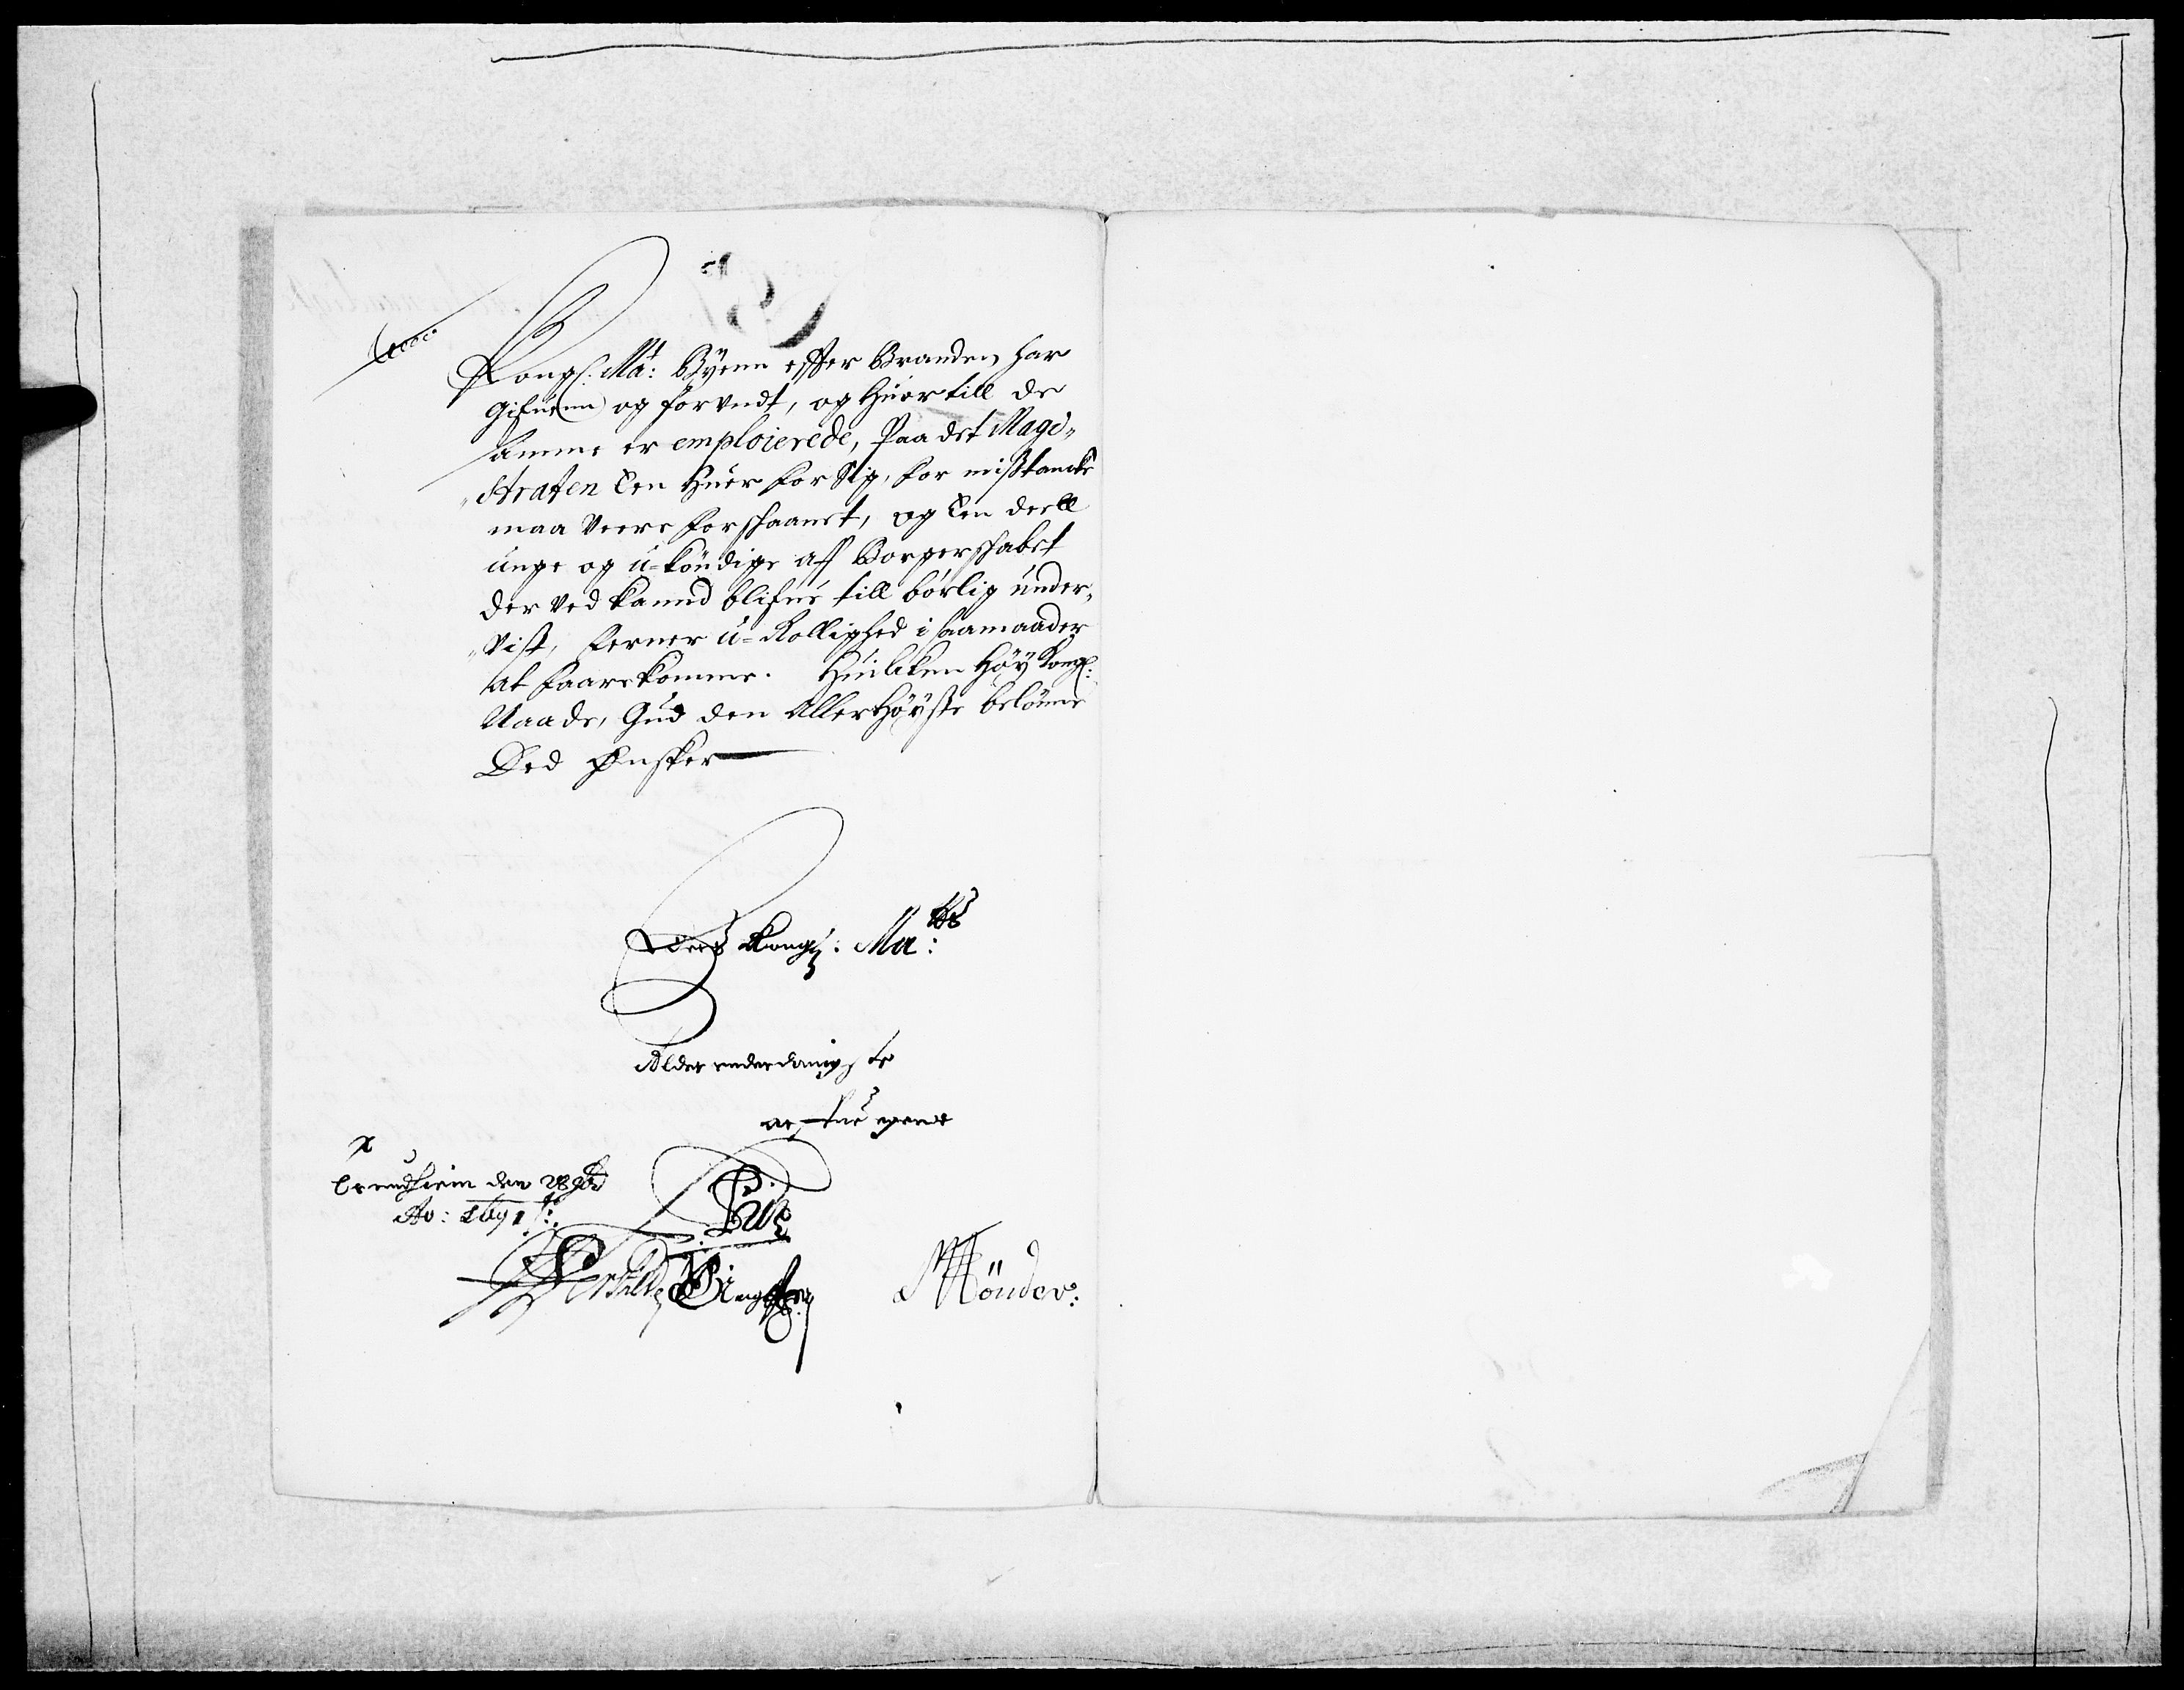 Kongl: Ma: Byenn efter Branden, har
Gifuenn og forundt, og Huor till de
samme er emploierede, Paa det Magi„
„straten Een Huer for Sig, for mistancke
maa veere forskaanet, og Een deell
unge og u-kóndige aff Borgerskabet
der ved kannd blifue till bórlig under„
„vist, ferner u-Rollighed i saamaader
at faarekomme. Huilcken Høy Kongl:
Naade, Gud den Allerhøyste belónne
Ded Ønsker
Eders Kongl: Ma:tts
Alder underdanigste
arfue
Trundhiem den 28
Ao: 1691
Mönder: